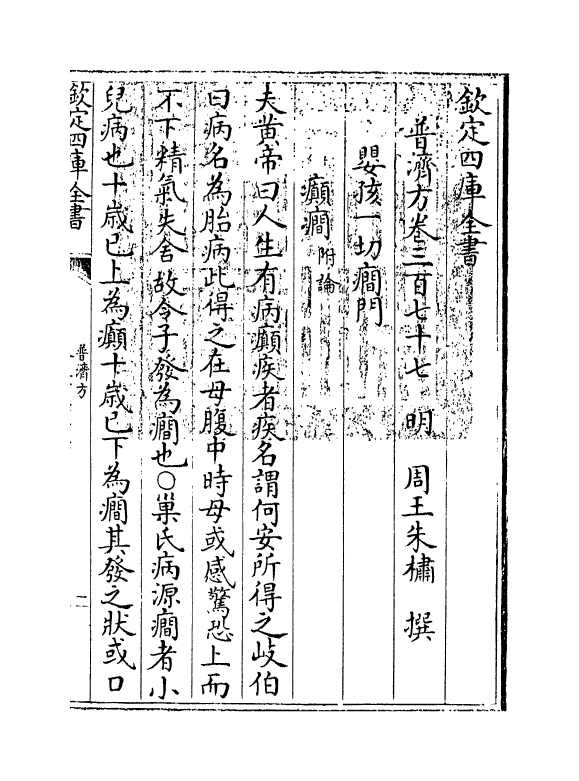 欽定四庫全書
普濟方卷三百七十七 明 周王朱橚 撰
嬰孩一切癇門
癲癇附論
夫黄帝曰人生有病癲疾者疾名謂何安所得之岐伯
曰病名為胎病此得之在母腹中時母或感驚恐上而
不下精氣失舍故令子發為癇也○巢氏病源癇者小
兒病也十歳已上為癲十歳已下為癇其發之狀或口
欽定四庫全書
普濟方